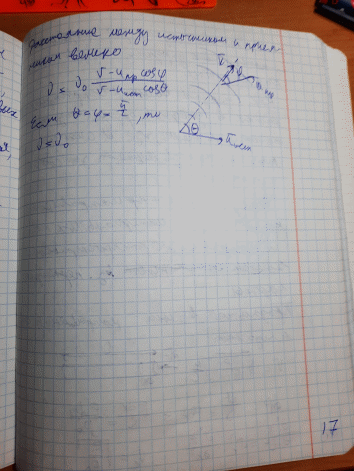 Расстояние между источником и прием-
ником велико
ν = ν₀ (v - u пр cos φ) / (v - u ист cos θ)
Если θ = φ = π/2, то
ν = ν₀
v φ
u пр
θ
u ист
17